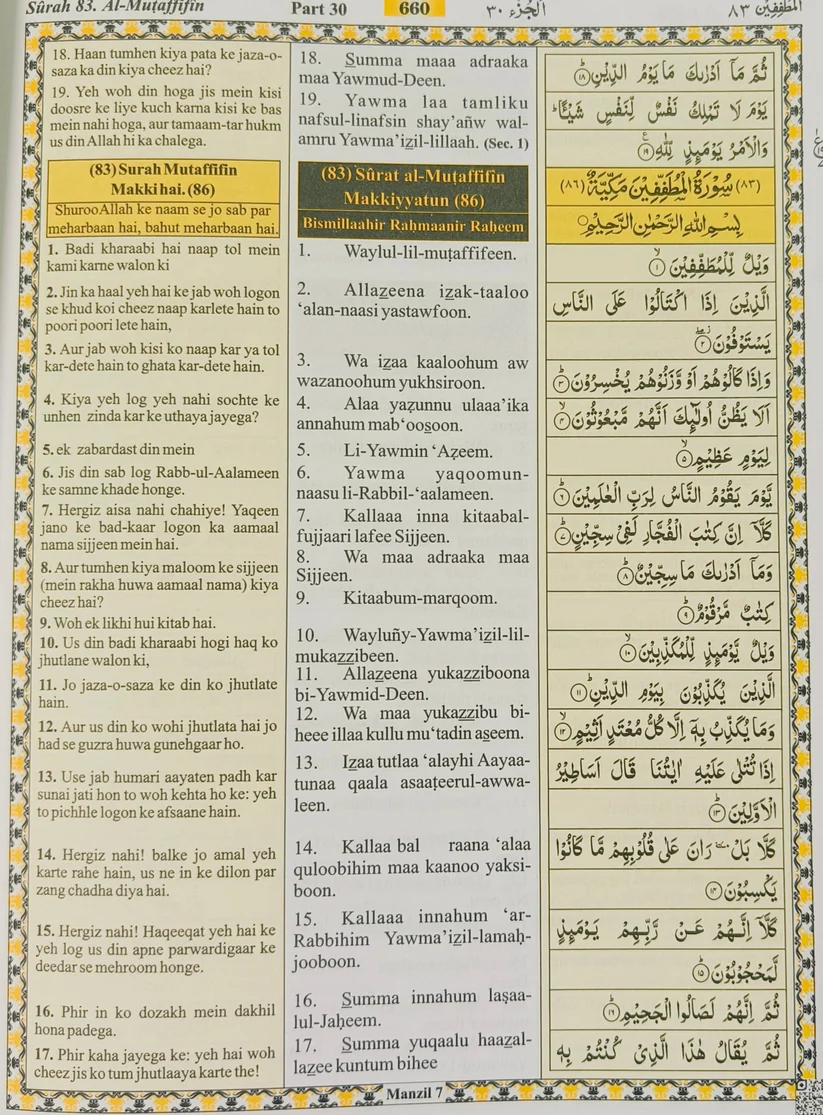 Sûrah 83. Al-Muṭaffifîn
Part 30
660
الجُزء ٣٠
المُطَفِّفِين ٨٣
18. Haan tumhen kiya pata ke jaza-o-
saza ka din kiya cheez hai?
19. Yeh woh din hoga jis mein kisi
doosre ke liye kuch karna kisi ke bas
mein nahi hoga, aur tamaam-tar hukm
us din Allah hi ka chalega.
(83) Surah Mutaffifin
Makki hai. (86)
Shuroo Allah ke naam se jo sab par
meharbaan hai, bahut meharbaan hai.
1. Badi kharaabi hai naap tol mein
kami karne walon ki
2. Jin ka haal yeh hai ke jab woh logon
se khud koi cheez naap karlete hain to
poori poori lete hain,
3. Aur jab woh kisi ko naap kar ya tol
kar-dete hain to ghata kar-dete hain.
4. Kiya yeh log yeh nahi sochte ke
unhen zinda kar ke uthaya jayega?
5. ek zabardast din mein
6. Jis din sab log Rabb-ul-Aalameen
ke samne khade honge.
7. Hergiz aisa nahi chahiye! Yaqeen
jano ke bad-kaar logon ka aamaal
nama sijjeen mein hai.
8. Aur tumhen kiya maloom ke sijjeen
(mein rakha huwa aamaal nama) kiya
cheez hai?
9. Woh ek likhi hui kitab hai.
10. Us din badi kharaabi hogi haq ko
jhutlane walon ki,
11. Jo jaza-o-saza ke din ko jhutlate
hain.
12. Aur us din ko wohi jhutlata hai jo
had se guzra huwa gunehgaar ho.
13. Use jab humari aayaten padh kar
sunai jati hon to woh kehta ho ke: yeh
to pichhle logon ke afsaane hain.
14. Hergiz nahi! balke jo amal yeh
karte rahe hain, us ne in ke dilon par
zang chadha diya hai.
15. Hergiz nahi! Haqeeqat yeh hai ke
yeh log us din apne parwardigaar ke
deedar se mehroom honge.
16. Phir in ko dozakh mein dakhil
hona padega.
17. Phir kaha jayega ke: yeh hai woh
cheez jis ko tum jhutlaaya karte the!
18. Summa maaa adraaka
maa Yawmud-Deen.
19. Yawma laa tamliku
nafsul-linafsin shay'añw wal-
amru Yawma'izil-lillaah. (Sec. 1)
(83) Sûrat al-Muṭaffifîn
Makkiyyatun (86)
Bismillaahir Raḥmaanir Raḥeem
1. Waylul-lil-muṭaffifeen.
2. Allazeena izak-taaloo
‘alan-naasi yastawfoon.
3. Wa izaa kaaloohum aw
wazanoohum yukhsiroon.
4. Alaa yaẓunnu ulaaa'ika
annahum mab‘oosoon.
5. Li-Yawmin ‘Aẓeem.
6. Yawma yaqoomun-
naasu li-Rabbil-‘aalameen.
7. Kallaaa inna kitaabal-
fujjaari lafee Sijjeen.
8. Wa maa adraaka maa
Sijjeen.
9. Kitaabum-marqoom.
10. Wayluñy-Yawma'izil-lil-
mukazzibeen.
11. Allazeena yukazziboona
bi-Yawmid-Deen.
12. Wa maa yukazzibu bi-
heee illaa kullu mu‘tadin aseem.
13. Izaa tutlaa ‘alayhi Aayaa-
tunaa qaala asaaṭeerul-awwa-
leen.
14. Kallaa bal raana ‘alaa
quloobihim maa kaanoo yaksi-
boon.
15. Kallaaa innahum ‘ar-
Rabbihim Yawma'izil-lamaḥ-
jooboon.
16. Summa innahum laṣaa-
lul-Jaḥeem.
17. Summa yuqaalu haazal-
lazee kuntum bihee
ثُمَّ مَاۤ اَدْرٰىكَ مَا يَوْمُ الدِّيْنِ ۱۸
يَوْمَ لَا تَمْلِكُ نَفْسٌ لِّنَفْسٍ شَيْـًٔا
وَالْاَمْرُ يَوْمَىِٕذٍ لِّلّٰهِ ۱۹
(۸۳) سُوْرَةُ الْمُطَفِّفِيْنَ مَكِّيَّةٌ (۸۶)
بِسْمِ اللّٰهِ الرَّحْمٰنِ الرَّحِيْمِ
وَيْلٌ لِّلْمُطَفِّفِيْنَ ۱
الَّذِيْنَ اِذَا اكْتَالُوْا عَلَى النَّاسِ
يَسْتَوْفُوْنَ ۲
وَاِذَا كَالُوْهُمْ اَوْ وَّزَنُوْهُمْ يُخْسِرُوْنَ ۳
اَلَا يَظُنُّ اُولٰٓىِٕكَ اَنَّهُمْ مَّبْعُوْثُوْنَ ۴
لِيَوْمٍ عَظِيْمٍ ۵
يَّوْمَ يَقُوْمُ النَّاسُ لِرَبِّ الْعٰلَمِيْنَ ۶
كَلَّاۤ اِنَّ كِتٰبَ الْفُجَّارِ لَفِيْ سِجِّيْنٍ ۷
وَمَاۤ اَدْرٰىكَ مَا سِجِّيْنٌ ۸
كِتٰبٌ مَّرْقُوْمٌ ۹
وَيْلٌ يَّوْمَىِٕذٍ لِّلْمُكَذِّبِيْنَ ۱۰
الَّذِيْنَ يُكَذِّبُوْنَ بِيَوْمِ الدِّيْنِ ۱۱
وَمَا يُكَذِّبُ بِهٖۤ اِلَّا كُلُّ مُعْتَدٍ اَثِيْمٍ ۱۲
اِذَا تُتْلٰى عَلَيْهِ اٰيٰتُنَا قَالَ اَسَاطِيْرُ
الْاَوَّلِيْنَ ۱۳
كَلَّا بَلْ ٚ رَانَ عَلٰى قُلُوْبِهِمْ مَّا كَانُوْا
يَكْسِبُوْنَ ۱۴
كَلَّاۤ اِنَّهُمْ عَنْ رَّبِّهِمْ يَوْمَىِٕذٍ
لَّمَحْجُوْبُوْنَ ۱۵
ثُمَّ اِنَّهُمْ لَصَالُوا الْجَحِيْمِ ۱۶
ثُمَّ يُقَالُ هٰذَا الَّذِيْ كُنْتُمْ بِهٖ
Manzil 7